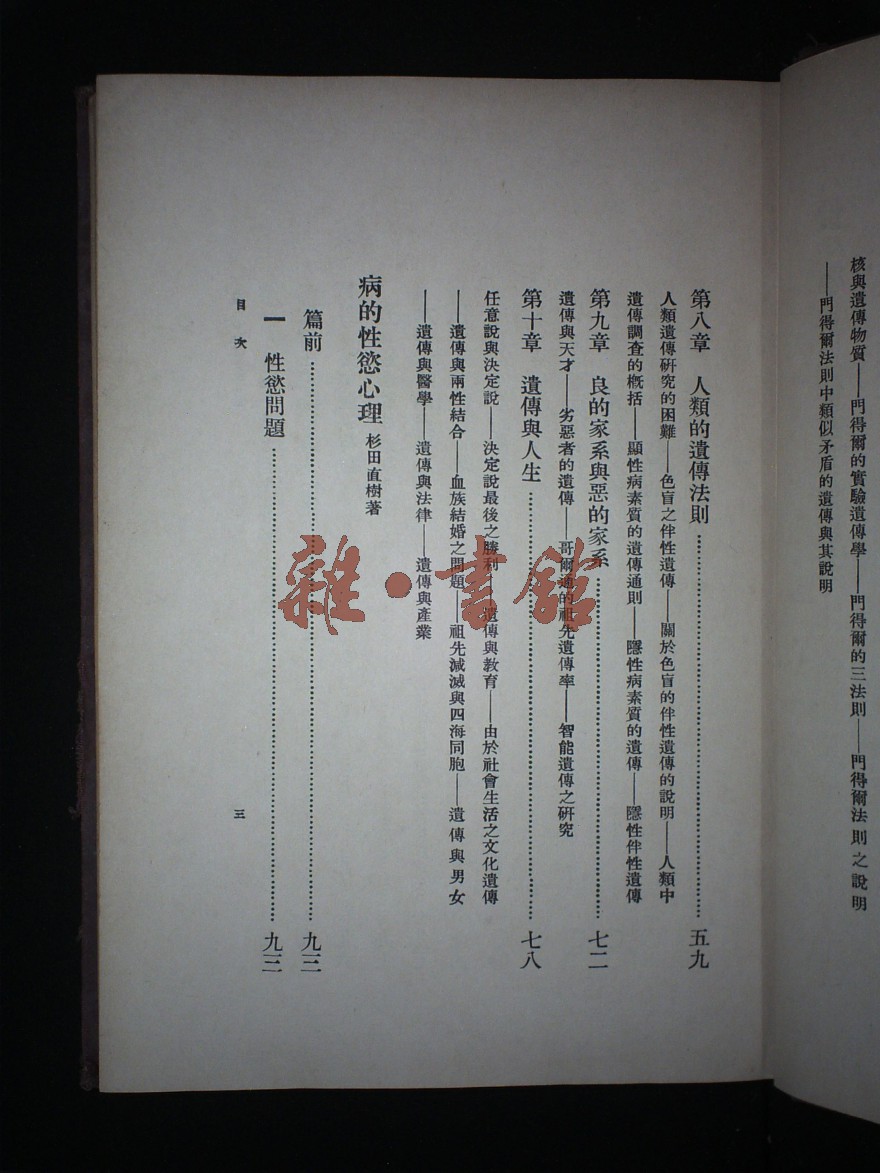 核與遺傳物質——門得爾的實驗遺傳學——門得爾的三法則——門得爾法則之說明
——門得爾法則中類似矛盾的遺傳與其說明
第八章　人類的遺傳法則……五九
人類遺傳研究的困難——色盲之伴性遺傳——關於色盲的伴性遺傳的說明——人類中
遺傳調查的概括——顯性病素質的遺傳通則——隱性病素質的遺傳——隱性伴性遺傳
第九章　良的家系與惡的家系……七二
遺傳與天才——劣惡者的遺傳——哥爾通的祖先遺傳率——智能遺傳之研究
第十章　遺傳與人生……七八
任意說與決定說——決定說最後之勝利——遺傳與教育——由於社會生活之文化遺傳
——遺傳與兩性結合——血族結婚之問題——祖先減滅與四海同胞——遺傳與男女
——遺傳與醫學——遺傳與法律——遺傳與產業
病的性慾心理　杉田直樹著
篇前……九三
一　性慾問題……九三
目次　三
雜·書館